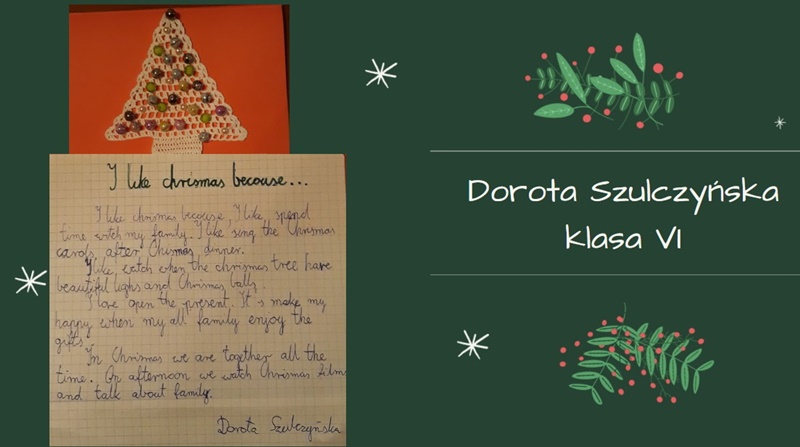 I like chrismas becouse...
I like chrismas becouse, I like, spend
time witch my family. I like sing the Chrismas
carols, after Chrismas dinner.
I like watch when the chrismas tree have
beautiful lighs and Chrismas balls.
I love open the present. It's make my
happy when my all family enjoy the
gifts.
In Chrismas we are together all the
time. On afternoon we watch Chrismas films
and talk about family.
Dorota Szulczyńska
Dorota Szulczyńska
klasa VI